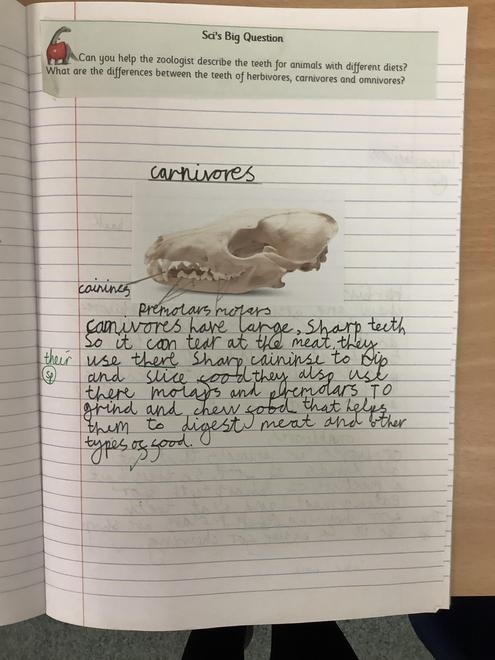 Sci's Big Question
Can you help the zoologist describe the teeth for animals with different diets?
What are the differences between the teeth of herbivores, carnivores and omnivores?
carnivores
cainines
premolars molars
carnivores have large, sharp teeth
So it can tear at the meat, they
their
use there sharp caininse to rip
sp
and slice food they also use
there molars and premolars TO
grind and chew food that helps
them to digest meat and other
types of food.